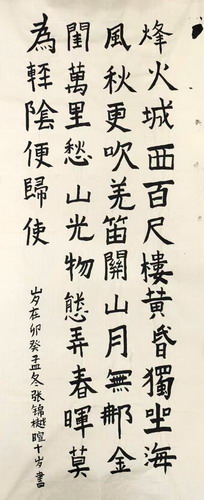 烽火城西百尺樓黃昏獨坐海
風秋更吹羌笛關山月無那金
閨萬里愁山光物態弄春暉莫
為輕陰便歸使
岁在卯癸孟冬张锦樾暄十岁書